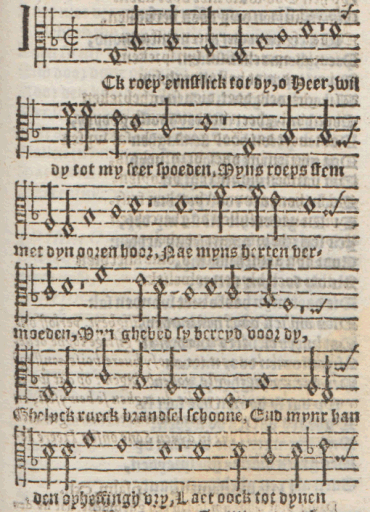 ICk roep'ernstlick tot dy, o Heer, wil
dy tot my seer spoeden, Myns roeps stem
met dyn ooren hoor, Nae myns herten ver-
moeden, Myn ghebed sy bereyd voor dy,
Ghelyck rueck brandsel schoone, End mynr han
den opheffingh vry, Laet oock tot dynen